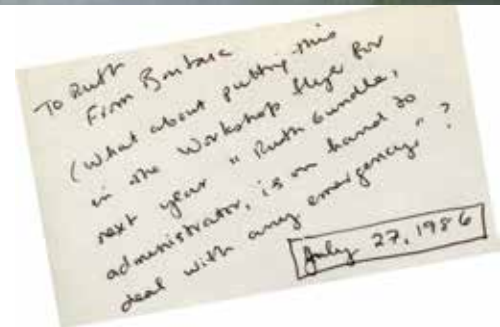 To Ruth
From Barbara
(What about putting this
in the Workshop flyer for
next year "Ruth Gundle,
administrator, is on hand to
deal with any emergency"?
July 27, 1986